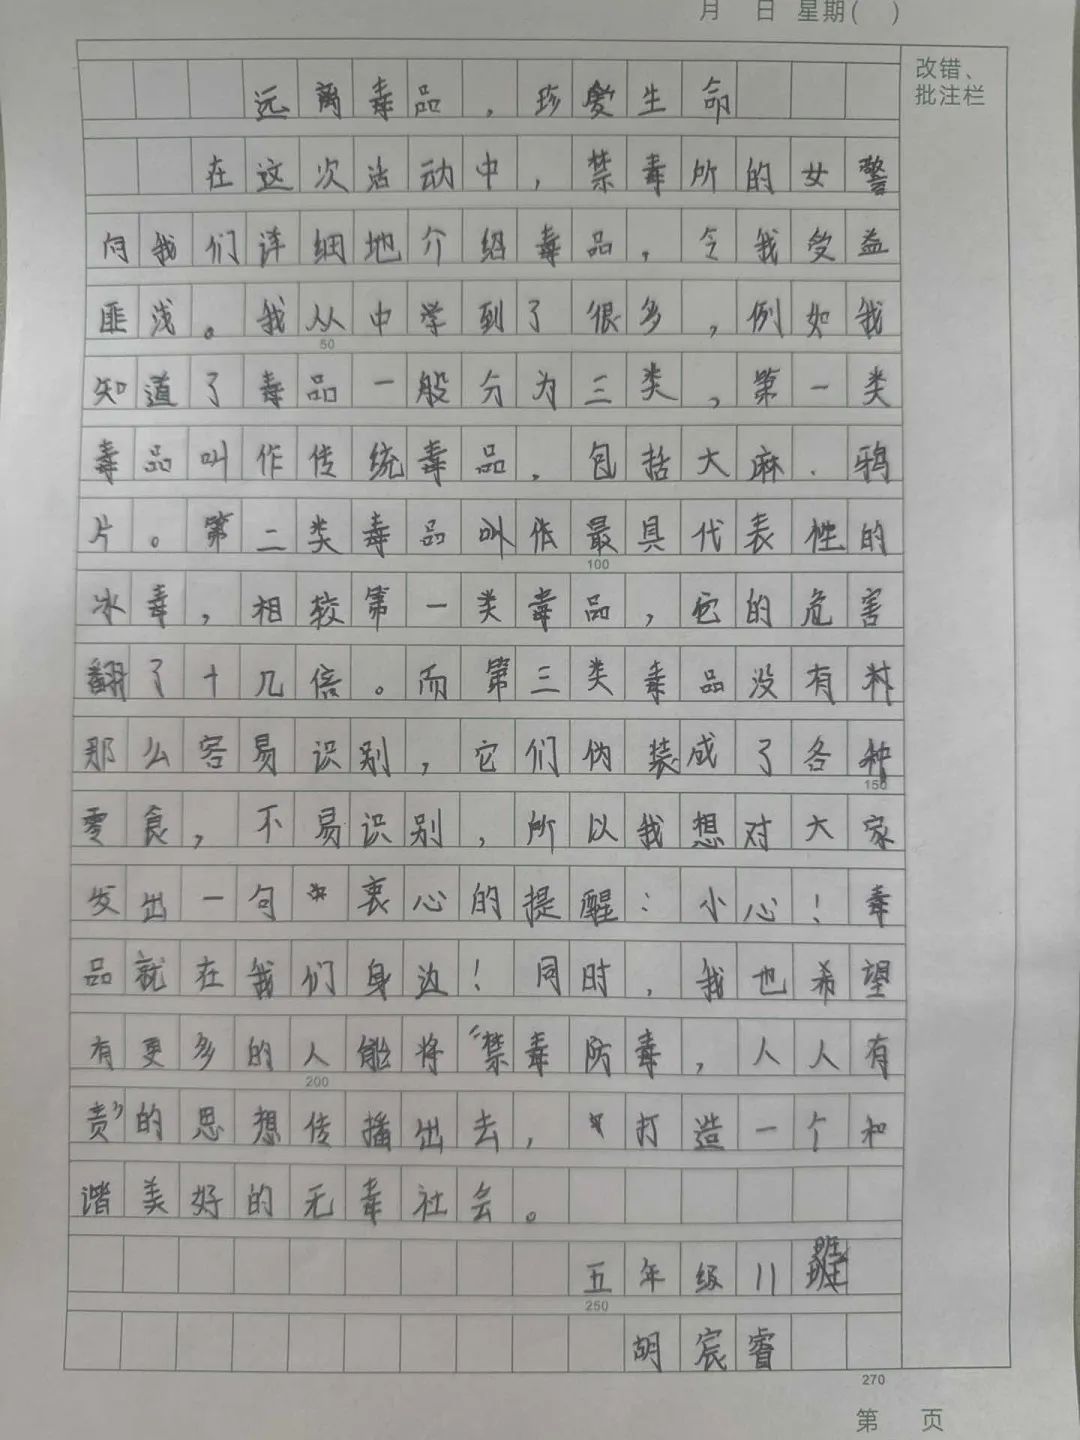 月 日 星期( )
改错、
批注栏
远离毒品，珍爱生命
在这次活动中，禁毒所的女警
向我们详细地介绍毒品，令我受益
匪浅。我从中学到了很多，例如我
50
知道了毒品一般分为三类，第一类
毒品叫作传统毒品，包括大麻、鸦
片。第二类毒品叫作最具代表性的
100
冰毒，相较第一类毒品，它的危害
翻了十几倍。而第三类毒品没有
那么容易识别，它们伪装成了各种
150
零食，不易识别，所以我想对大家
发出一句衷心的提醒：小心！毒
品就在我们身边！同时，我也希望
有更多的人能将“禁毒防毒，人人有
200
责”的思想传播出去，打造一个和
谐美好的无毒社会。
五年级11班
250
胡宸睿
270
第 页